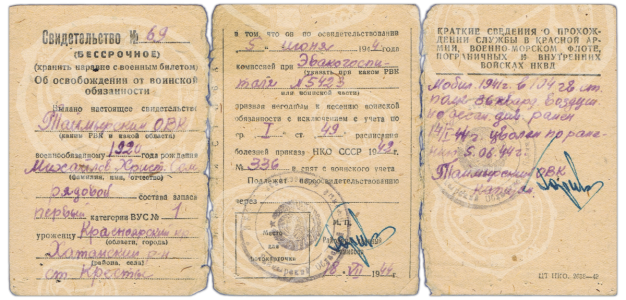 Свидетельство № 69
(БЕССРОЧНОЕ)
(хранить наравне с военным билетом)
Об освобождении от воинской
обязанности
Выдано настоящее свидетельство
Таймырским ОВК
(каким РВК и какой области)
военнообязанному 1920 года рождения
(фамилия, имя, отчество)
рядовой состава запаса
первый категории ВУС № 1
уроженцу Красноярский
(области, города)
Хатангский р-н
(района, села)
ст. Кресты
в том, что он по освидетельствовании
5 июня 1944 года
комиссией при Эвакогоспи-
(указать при каком РВК
тале № 5423
или воинской части)
признан негодным к несению воинской
обязанности с исключением с учета по
гр. I ст. 49 расписания
болезней приказа НКО СССР 1942 г.
№ 336 и снят с воинского учета
Подлежит переосвидетельствованию
через
М. П.
Место
для
фотокарточки
18 VII 1944
КРАТКИЕ СВЕДЕНИЯ О ПРОХОЖ-
ДЕНИИ СЛУЖБЫ В КРАСНОЙ АР-
МИИ, ВОЕННО-МОРСКОМ ФЛОТЕ,
ПОГРАНИЧНЫХ И ВНУТРЕННИХ
ВОЙСКАХ НКВД
Мобил. 1941 г.
гвард. воздуш
но десан. див. ранен
44 г. уволен по ране-
нию 5.06.44 г.
Таймырский ОВК